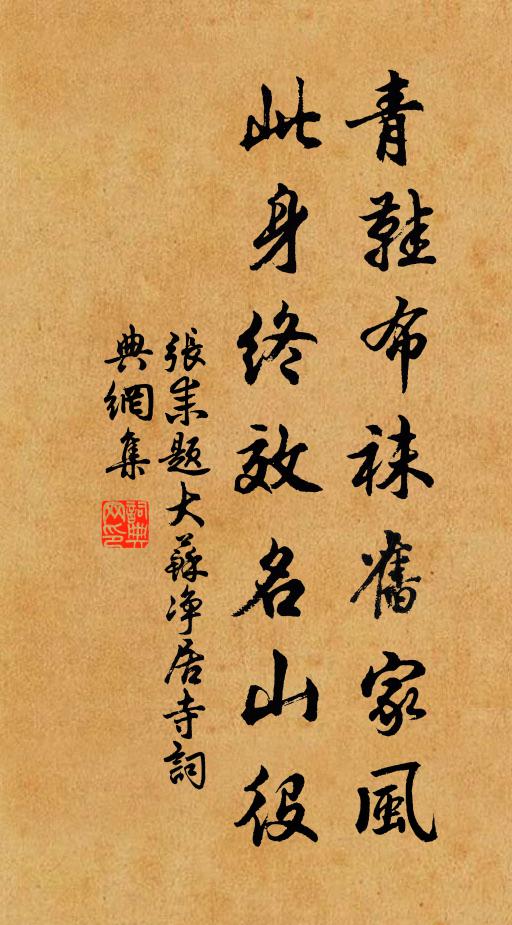 青鞋布袜舊家風
此身終效名山役
張耒題大蘇净居寺詞
典網集
詞典网印